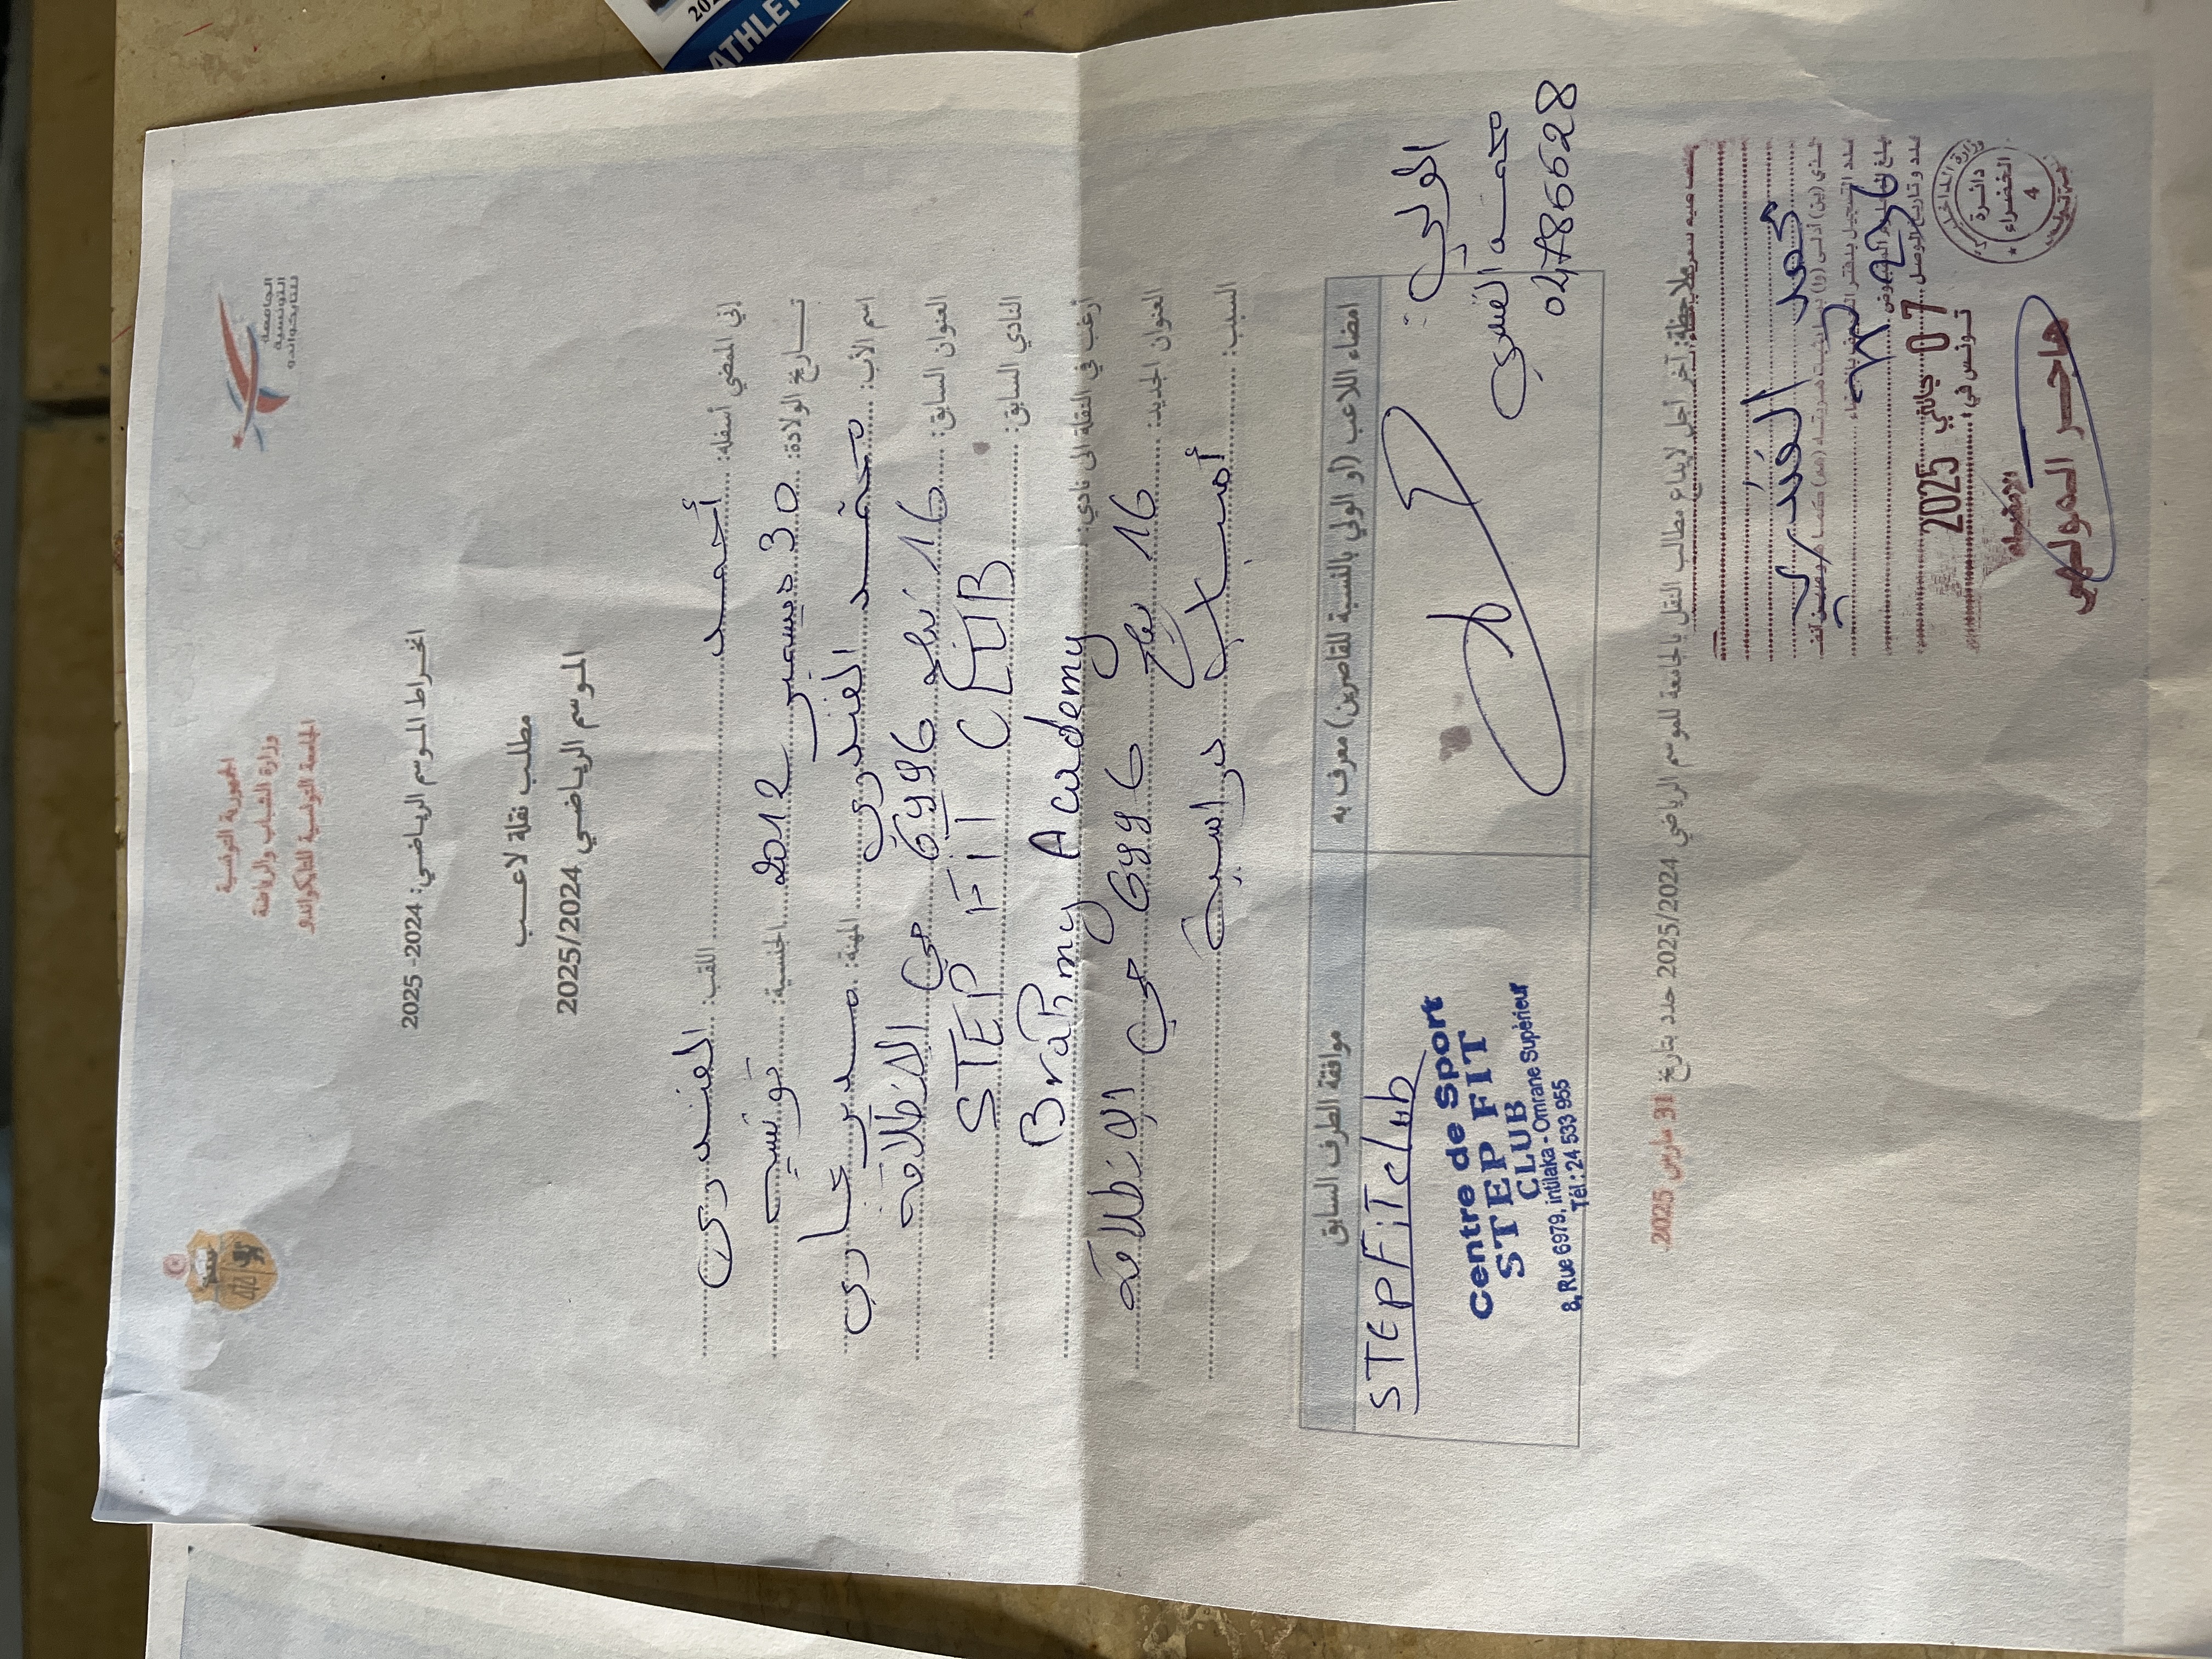 الجمهورية التونسية
وزارة الشباب والرياضة
الجامعة التونسية للتايكواندو
الجامعة
التونسية
للتايكواندو
انخراط الموسم الرياضي: 2024- 2025
مطلب نقلة لاعب
الموسم الرياضي 2025/2024
إني الممضي أسفله: أحمد اللقب: الغندري
تاريخ الولادة: 30 ديسمبر 2012 الجنسية: تونسية
اسم الأب: محمد الغندري المهنة: مدير عاري
العنوان السابق: 16 نهج 6996 حي الانطلاقة
النادي السابق: STEP FIT CLUB
أرغب في النقلة الى نادي: Brahmy Academy
العنوان الجديد: 16 نهج 6996 حي الانطلاقة
السبب: أسباب دراسية
امضاء اللاعب (أو الولي بالنسبة للقاصرين) معرف به
موافقة الطرف السابق
الولي:
محمد الغندري
04786628
STEP FiT club
Centre de Sport
STEP FIT
CLUB
8, Rue 6979, intilaka - Omrane Supérieur
Tél.: 24 533 955
ملاحظة: آخر أجل لإيداع مطالب النقل بالجامعة للموسم الرياضي 2025/2024 حدد بتاريخ 31 مارس 2025.
محمد الغندري
07 جانفي 2025
تونس في
الإمضاء
هاجر المولهي
دائرة
الخضراء
4
ATHLE